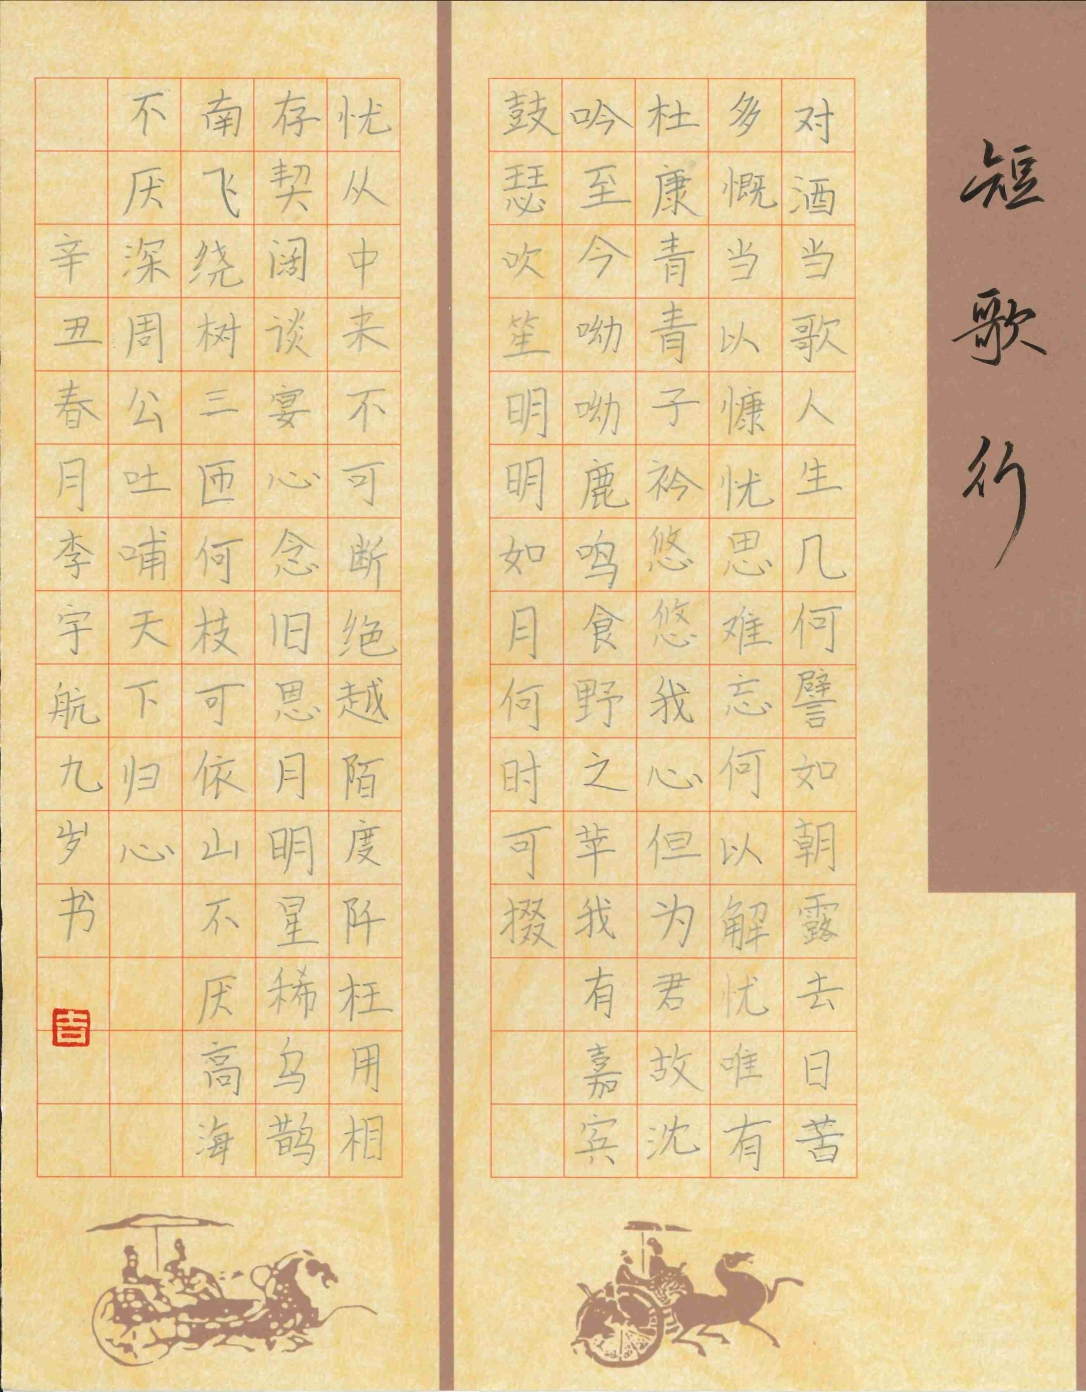 短歌行
对酒当歌人生几何譬如朝露去日苦
多慨当以慷忧思难忘何以解忧唯有
杜康青青子衿悠悠我心但为君故沈
吟至今呦呦鹿鸣食野之苹我有嘉宾
鼓瑟吹笙明明如月何时可掇
忧从中来不可断绝越陌度阡枉用相
存契阔谈宴心念旧恩月明星稀乌鹊
南飞绕树三匝何枝可依山不厌高海
不厌深周公吐哺天下归心
辛丑春月李宇航九岁书
吉